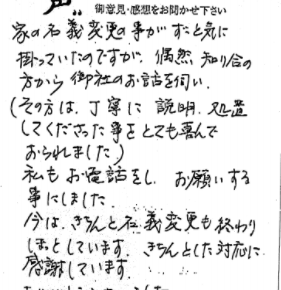 声
御意見・感想をお聞かせ下さい
家の名義変更の事がずっと気に
掛っていたのですが、偶然、知り合の
方から御社のお話を伺い、
(その方は、丁寧に説明、処置
してくださった事をとても喜んで
おられました)
私もお電話をし、お願いする
事にしました。
今は、きちんと名義変更も終わり
しまっとしています。きちんとした対応に
感謝しています。